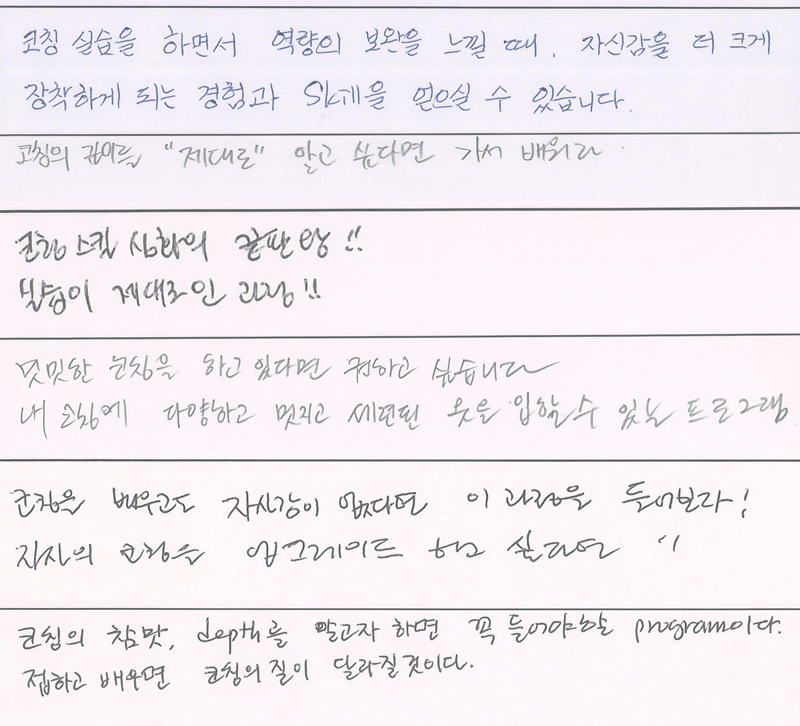 코칭 실습을 하면서 역량의 보완을 느낄 때, 자신감을 더 크게
장착하게 되는 경험과 Skill을 얻으실 수 있습니다.
코칭의 깊이를 "제대로" 알고 싶다면 가서 배워라
코칭 스킬 심화의 끝판왕!!
실습이 제대로인 과정!!
밋밋한 코칭을 하고 있다면 권하고 싶습니다
내 코칭에 다양하고 멋지고 세련된 옷을 입힐 수 있는 프로그램
코칭을 배우고도 자신감이 없다면 이 과정을 들어보라!
자신의 코칭을 업그레이드 하고 싶다면 "
코칭의 참맛, depth를 알고자 하면 꼭 들어야할 program이다.
접하고 배우면 코칭의 질이 달라질 것이다.